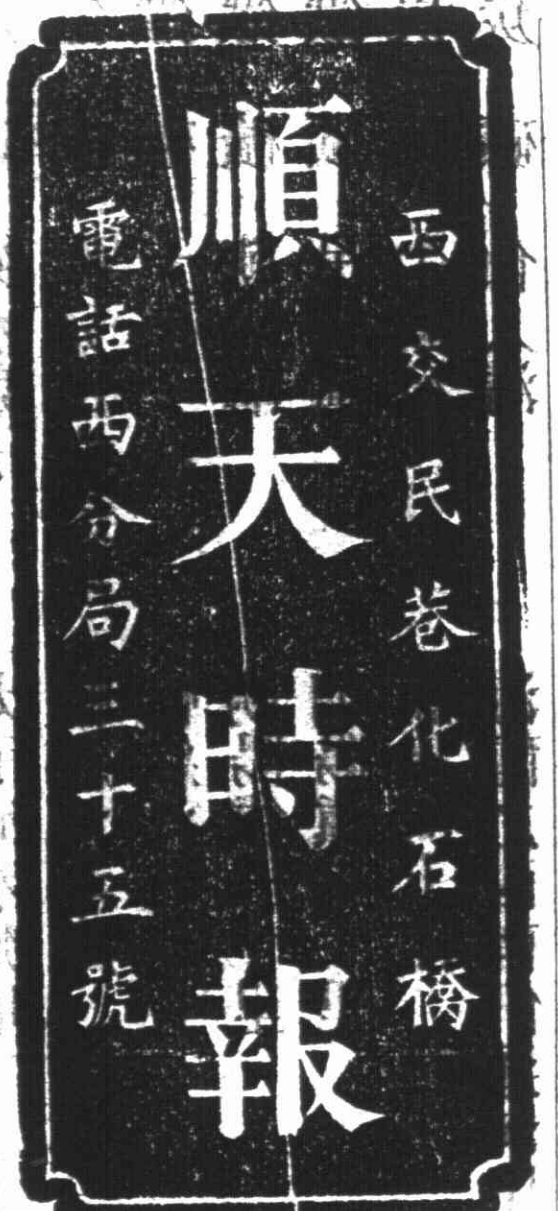 西交民巷化石橋
順天時報
電話西分局三十五號